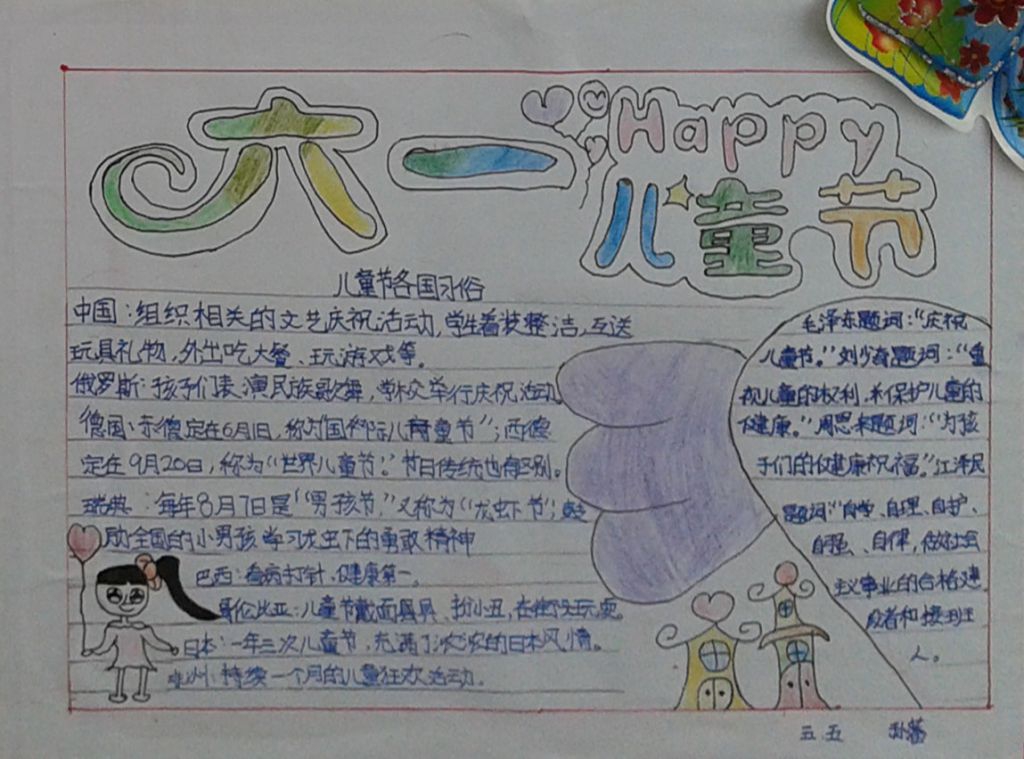 六一
Happy
儿童节
儿童节各国习俗
中国:组织相关的文艺庆祝活动,学生着装整洁,互送
玩具礼物,外出吃大餐、玩游戏等。
俄罗斯:孩子们表演民族歌舞,学校举行庆祝活动
德国:东德定在6月1日,称为"国际儿童节";西德
定在9月20日,称为"世界儿童节。"节日传统也有区别。
瑞典:每年8月7日是"男孩节"又称为"龙虾节",鼓
励全国的小男孩学习龙虫下的勇敢精神
巴西:看病打针,健康第一。
哥伦比亚:儿童节戴面具、扮小丑,在街头玩耍
日本:一年三次儿童节,充满了浓浓的日本风情。
非洲:持续一个月的儿童狂欢活动。
毛泽东题词:"庆祝
儿童节。"刘少奇题词:"重
视儿童的权利,和保护儿童的
健康。"周恩来题词:"为孩
子们的健康祝福。"江泽民
题词"自学、自理、自护、
自强、自律,做好社会
主义事业的合格建
设者和接班
人。
五五